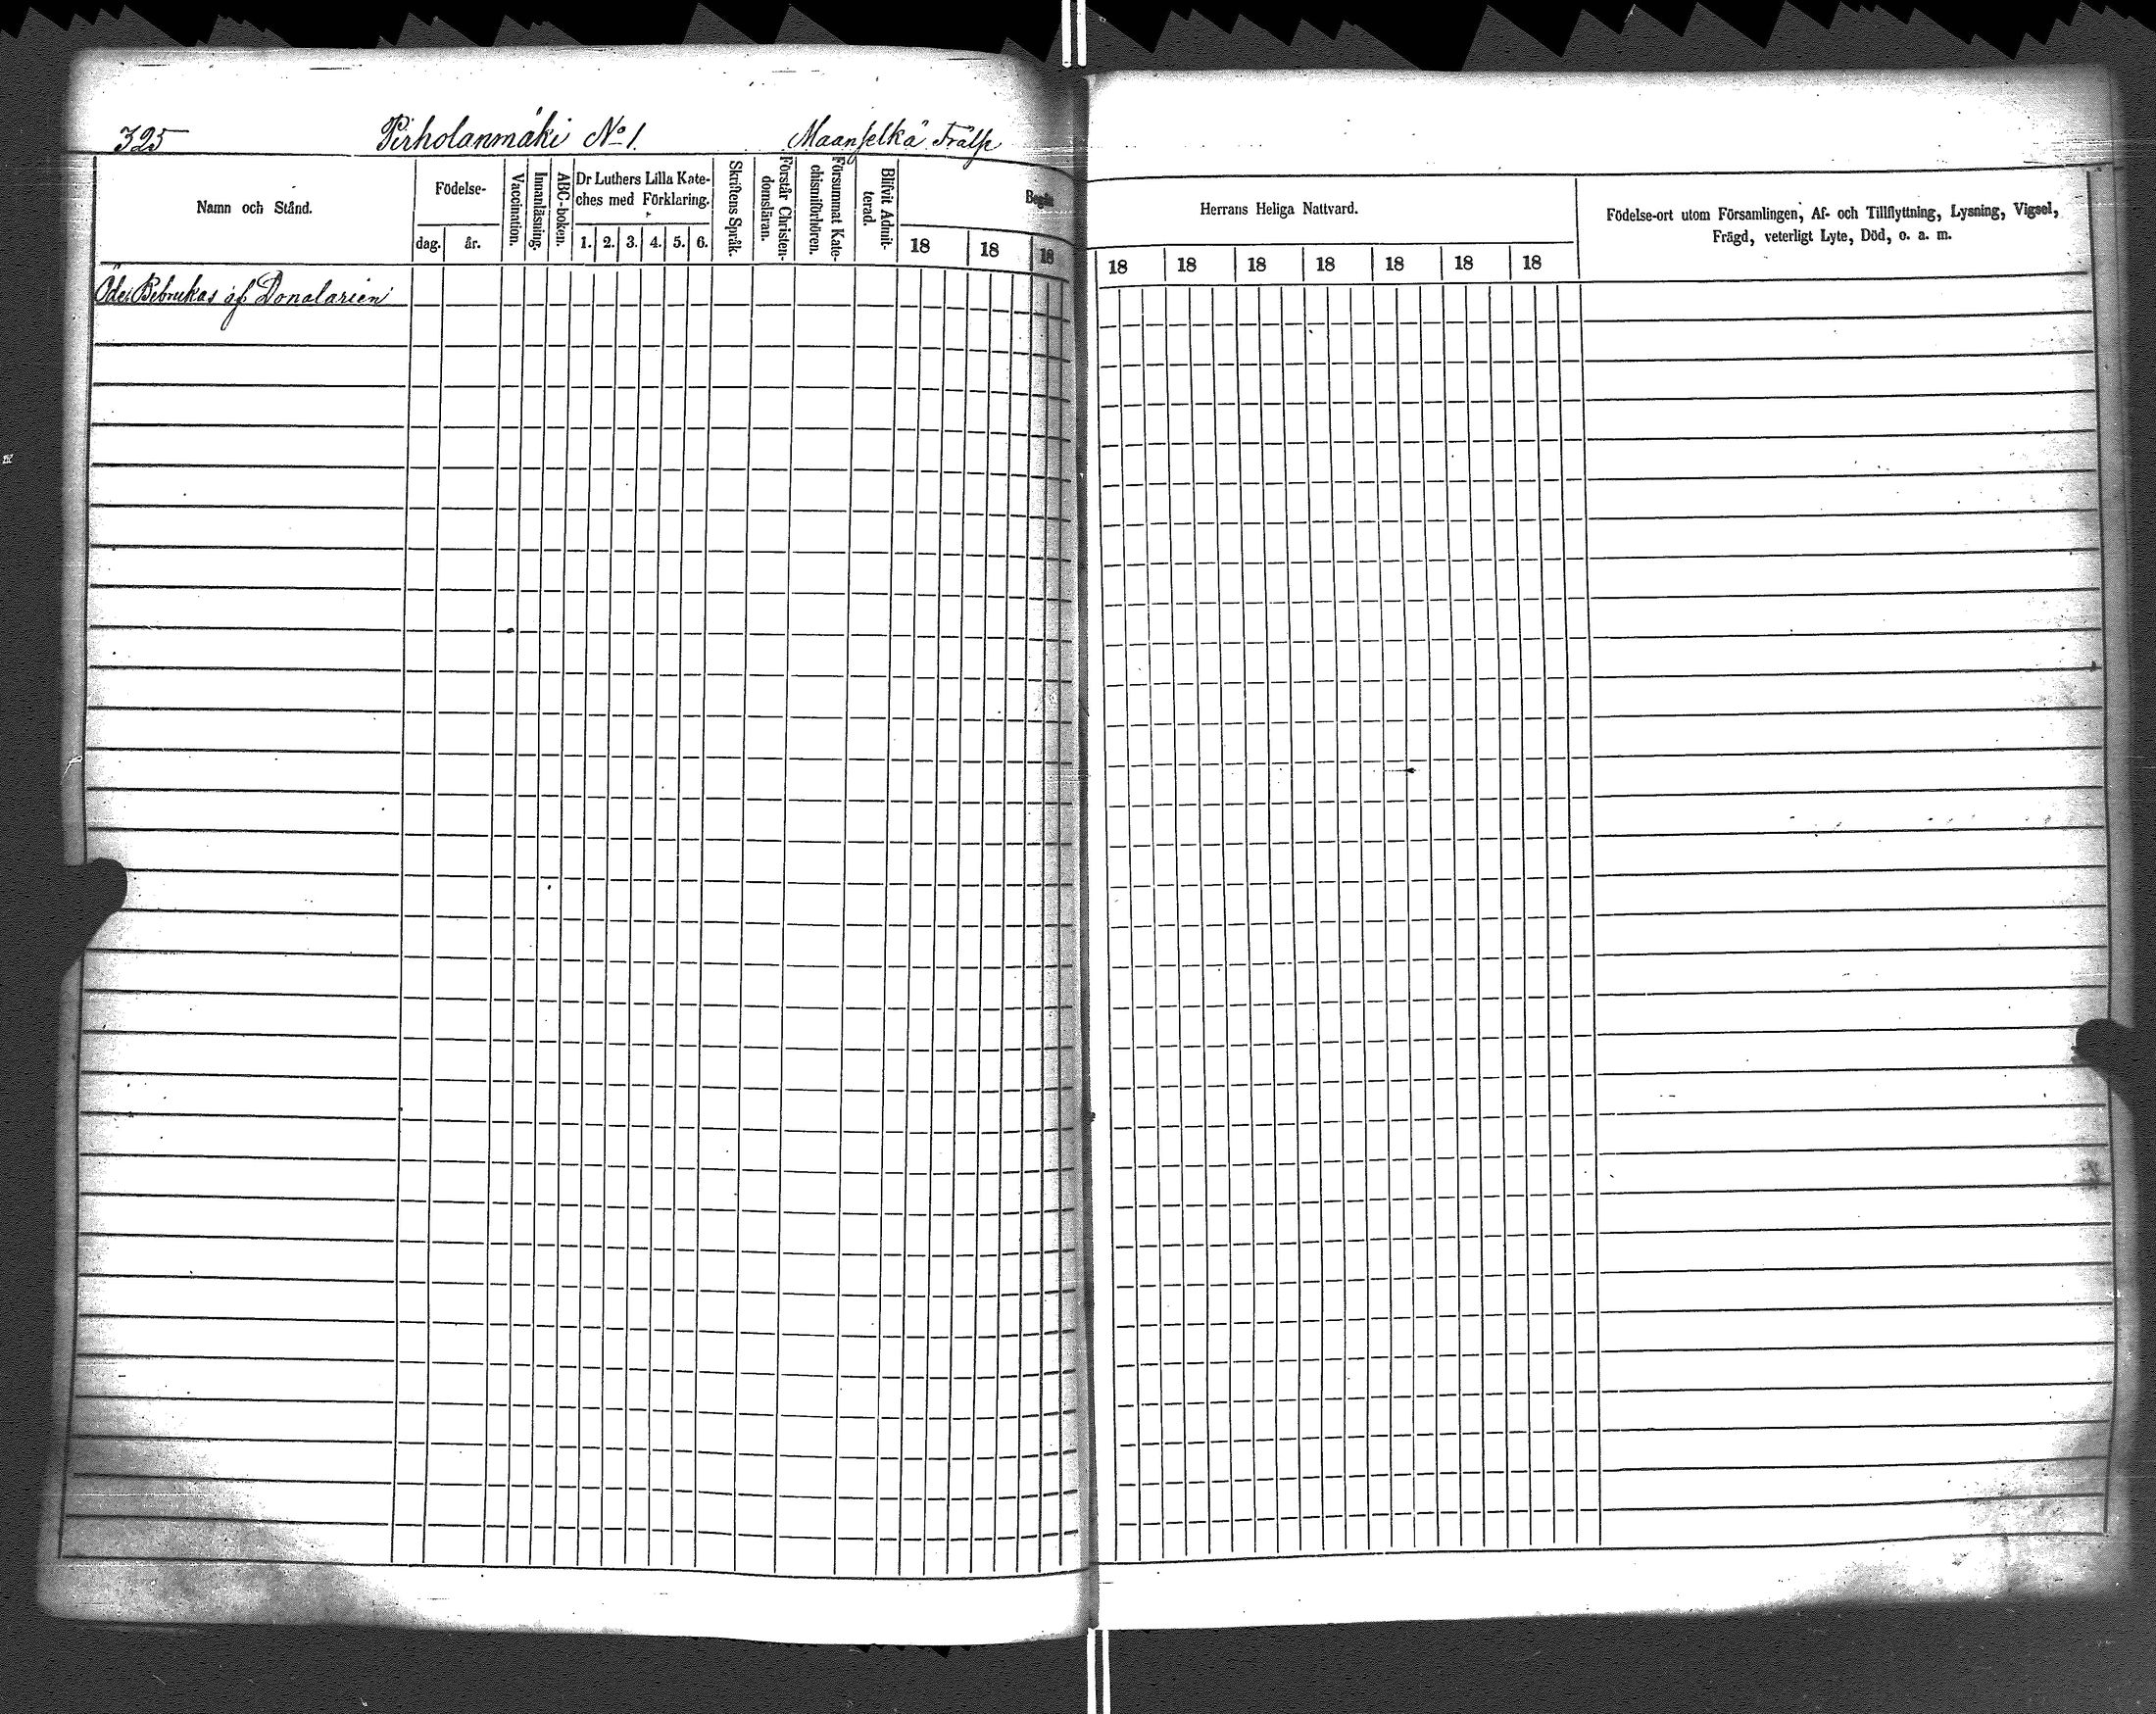 325 Pirholanmäki No 1. Maanselkä Frälse
Namn och Stånd.
Födelse-
dag. år.
Vaccination.
Innanläsning.
ABC-boken.
Dr Luthers Lilla Kate-
ches med Förklaring.
1. 2. 3. 4. 5. 6.
Skriftens Språk.
Förstår Christen-
domsläran.
Försummat Kate-
chismiförhören.
Blifvit Admit-
terad.
Begått
18 18 18
Herrans Heliga Nattvard.
18 18 18 18 18 18 18
Födelse-ort utom Församlingen, Af- och Tillflyttning, Lysning, Vigsel,
Frägd, veterligt Lyte, Död, o. a. m.
Öde. Bebrukas af Donatarien